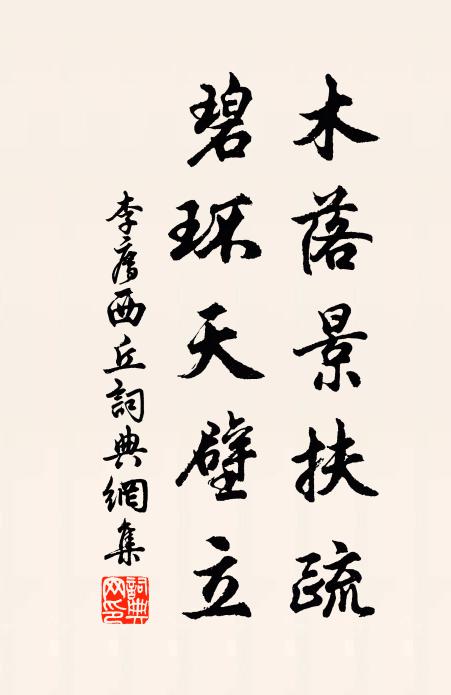 木落景扶疏
碧环天壁立
李廌西丘詞典網集
詞典
网印